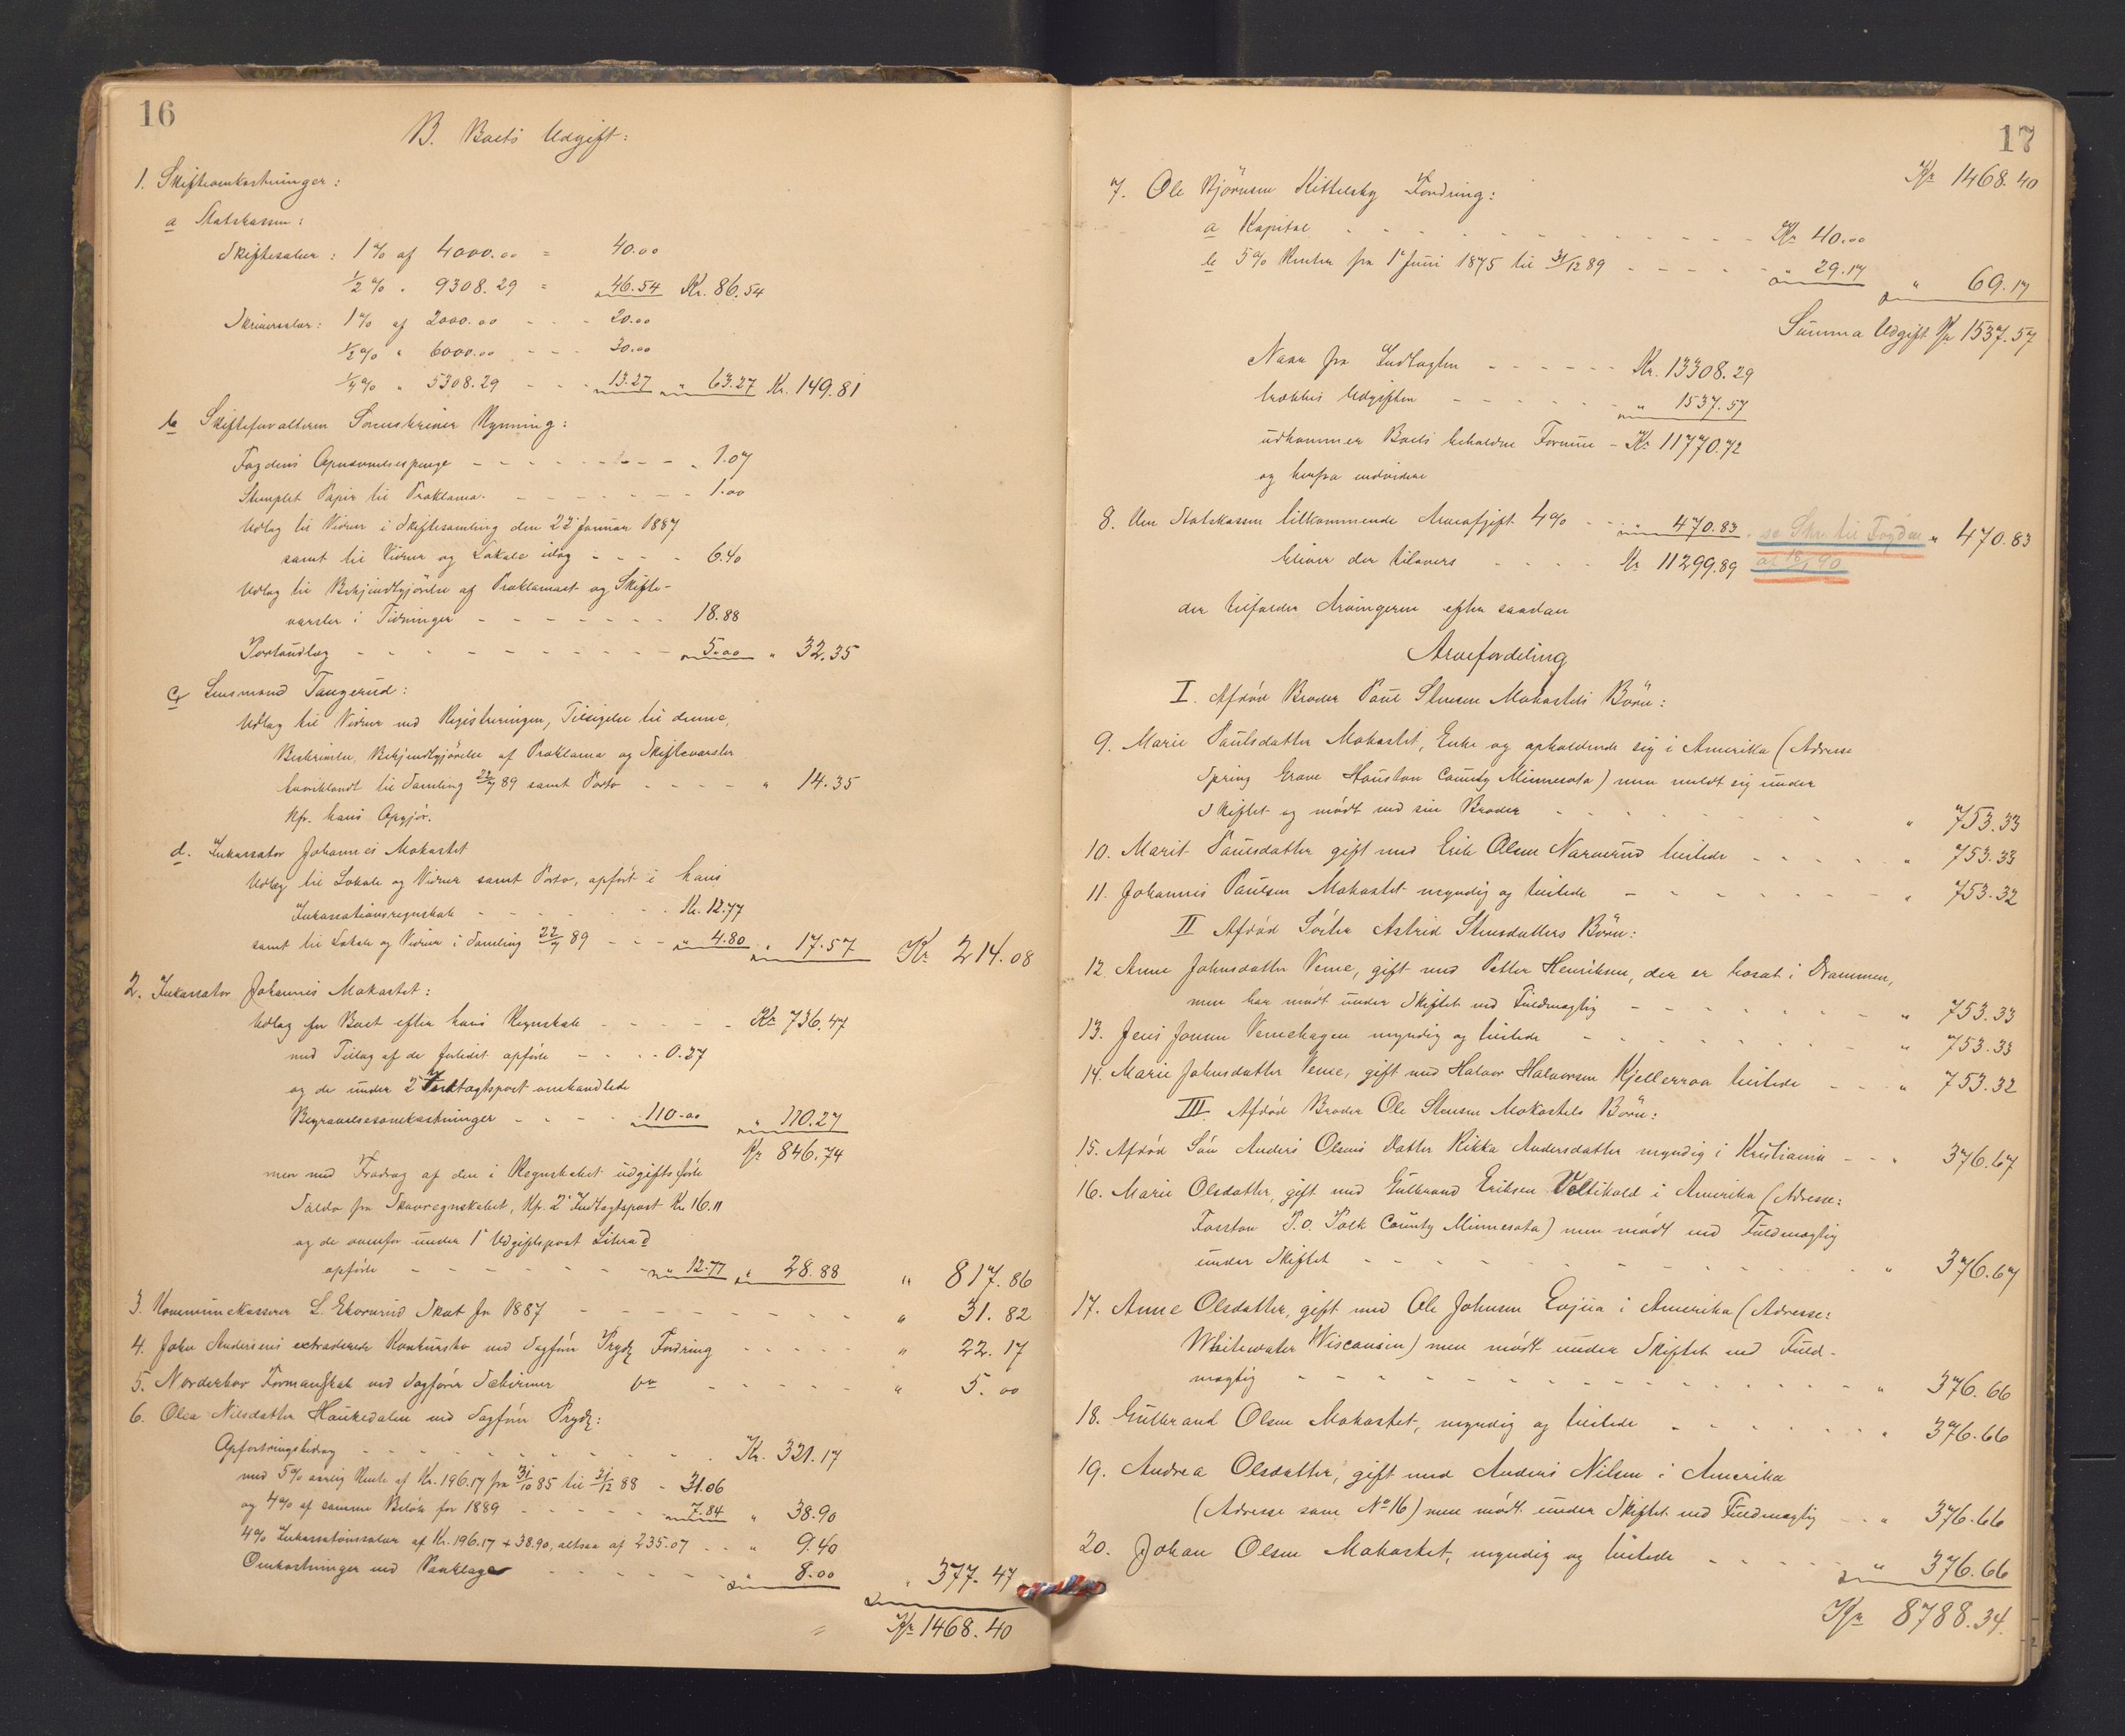 16
B. Boets Udgift:
1. Skifteomkostninger:
a Statskassen:
Skiftesalær: 1% af 4000.00 = 40.00
½% " 9308.29 = " 46.54 Kr. 86.54
Skriversalær: 1% af 2000.00 - - - 20.00
½% " 6000.00 - - - 30.00
¼% " 5308.29 - - - 13.27 " 63.27 Kr. 149.81
b Skifteforvalteren Sorenskriver Rynning:
Fogdens Opnævnelsespenge - - - - - - - " 1.07
Stemplet Papir til Proklama - - - - - - 1.00
Udlæg til Vidner i Skiftesamling den 22' Januar 1887
samt til Vidner og Lokale idag - - - - 6.40
Udlæg til Bekjendtgjörelse af Proklamaet og Skifte-
varsler i Tidninger - - - - - - - 18.88
Portoudlæg - - - - - - - - - - - 5.00 " 32.35
c Lensmand Tangerud:
Udlæg til Vidner ved Registreringen, Tilsigelse til denne,
Beskrivelse, Bekjendtgjörelse af Proklama og Skiftevarsler
til Samling 22/7 89 samt Porto - - - - " 14.35
Kfr. hans Opgjör.
d. Inkassator Johannes Mokastet
Udlæg til Lokale og Vidner samt Porto, opfört i hans
Inkassationsregnskab - - - - - - - Kr. 12.77
samt til Lokale og Vidner i Samling 22/7 89 - - - " 4.80 " 17.57 Kr 214.08
2. Inkassator Johannes Mokastet:
Udlæg for Boet efter hans Regnskab - - - - - Kr 736.47
med Tillæg af de forledet opförte - - - - 0.27
og de under 2' Indtægtspost omhandlede
Begravelsesomkostninger - - - - 110.00 " 110.27
Kr 846.74
men med Fradrag af den i Regnskabet udgiftsförte
Saldo fra Skovregnskabet, Kfr. 2' Indtægtspost Kr 16.11
og de ovenfor under 1' Udgiftspost Litra d
opförte - - - - - - - - 12.77 " 28.88 " 817.86
3. Kommunekasserer L. Ekornrud Skat for 1887 - - - - - - - - " 31.82
4. John Andersens extraderede Konkursbo ved Sagförer Prydz Fordring - - - - - " 22.17
5. Norderhov Formandskab ved Sagförer Schirmer do - - - - - " 5.00
6. Olea Nilsdatter Haukedalen ved Sagförer Prydz:
Opfostringsbidrag - - - - - - - - - - Kr. 321.17
med 5% aarlig Rente af Kr. 196.17 fra 31/10 85 til 31/12 88 - 31.06
og 4% af samme Belöb for 1889 - - - - - - 7.84 " 38.90
4% Inkassationssalær af Kr. 196.17 + 38.90, altsaa af 235.07 - - " 9.40
Omkostninger ved Paaklage - - - - - - - " 8.00 " 377.47
Kr 1468.40
17
Kr 1468.40
7. Ole Björnsen Kittelsby Fordring:
a Kapital - - - - - - - - - - - - - - Kr 40.00
b 5% Renter fra 1' Juni 1875 til 31/12 89 - - - - - " 29.17 " 69.17
Summa Udgift Kr 1537.57
Naar fra Indtægten - - - - - - Kr. 13308.29
trækkes Udgiften - - - - - - " 1537.57
udkommer Boets beholdne Formue - Kr 11770.72
og herfra endvidere
8. Den Statskassen tilkommende Arveafgift 4% - - " 470.83 se Skr. til Fogden " 470.83
bliver der tilovers - - - - Kr 11299.89 af 18/1 90
der tilfalder Arvingerne efter saadan
Arvefordeling
I. Afdöd Broder Paul Stensen Mokastets Börn:
9. Marie Paulsdatter Mokastet, Enke og opholdende sig i Amerika (Adresse
Spring Grove Houston County Minnesota) men meldt sig under
Skiftet og mödt ved sin Broder - - - - - - - - " 753.33
10. Marit Paulsdatter gift med Erik Olsen Narverud tilstede - - - - - " 753.33
11. Johannes Paulsen Mokastet myndig og tilstede - - - - - - - " 753.32
II Afdöd Söster Astrid Stensdatters Börn:
12. Anne Johnsdatter Veme, gift med Petter Henriksen, der er bosat i Drammen,
men har mödt under Skiftet ved Fuldmægtig - - - - - - - " 753.33
13. Jens Jonsen Vemehagen myndig og tilstede - - - - - - - " 753.33
14. Marie Johnsdatter Veme, gift med Halvor Halvorsen Kjellerroa tilstede - - - " 753.32
III. Afdöd Broder Ole Stensen Mokastets Börn:
15. Afdöd Sön Anders Olsens Datter Rikka Andersdatter myndig i Kristiania - - " 376.67
16. Marie Olsdatter, gift med Gulbrand Eriksen Veltikold i Amerika (Adresse:
Fosston P.O. Polk County Minnesota) men mödt ved Fuldmægtig
under Skiftet - - - - - - - - - - - - - - " 376.67
17. Anne Olsdatter, gift med Ole Johnsen Evjua i Amerika (Adresse:
Whitewater Wisconsin) men mödt under Skiftet ved Fuld-
mægtig - - - - - - - - - - - - - - - - " 376.66
18. Gulbrand Olsen Mokastet, myndig og tilstede - - - - - - - " 376.66
19. Andrea Olsdatter, gift med Anders Nilsen i Amerika
(Adresse som No 16) men mödt under Skiftet ved Fuldmægtig - - " 376.66
20. Johan Olsen Mokastet, myndig og tilstede - - - - - " 376.66
Kr 8788.34.